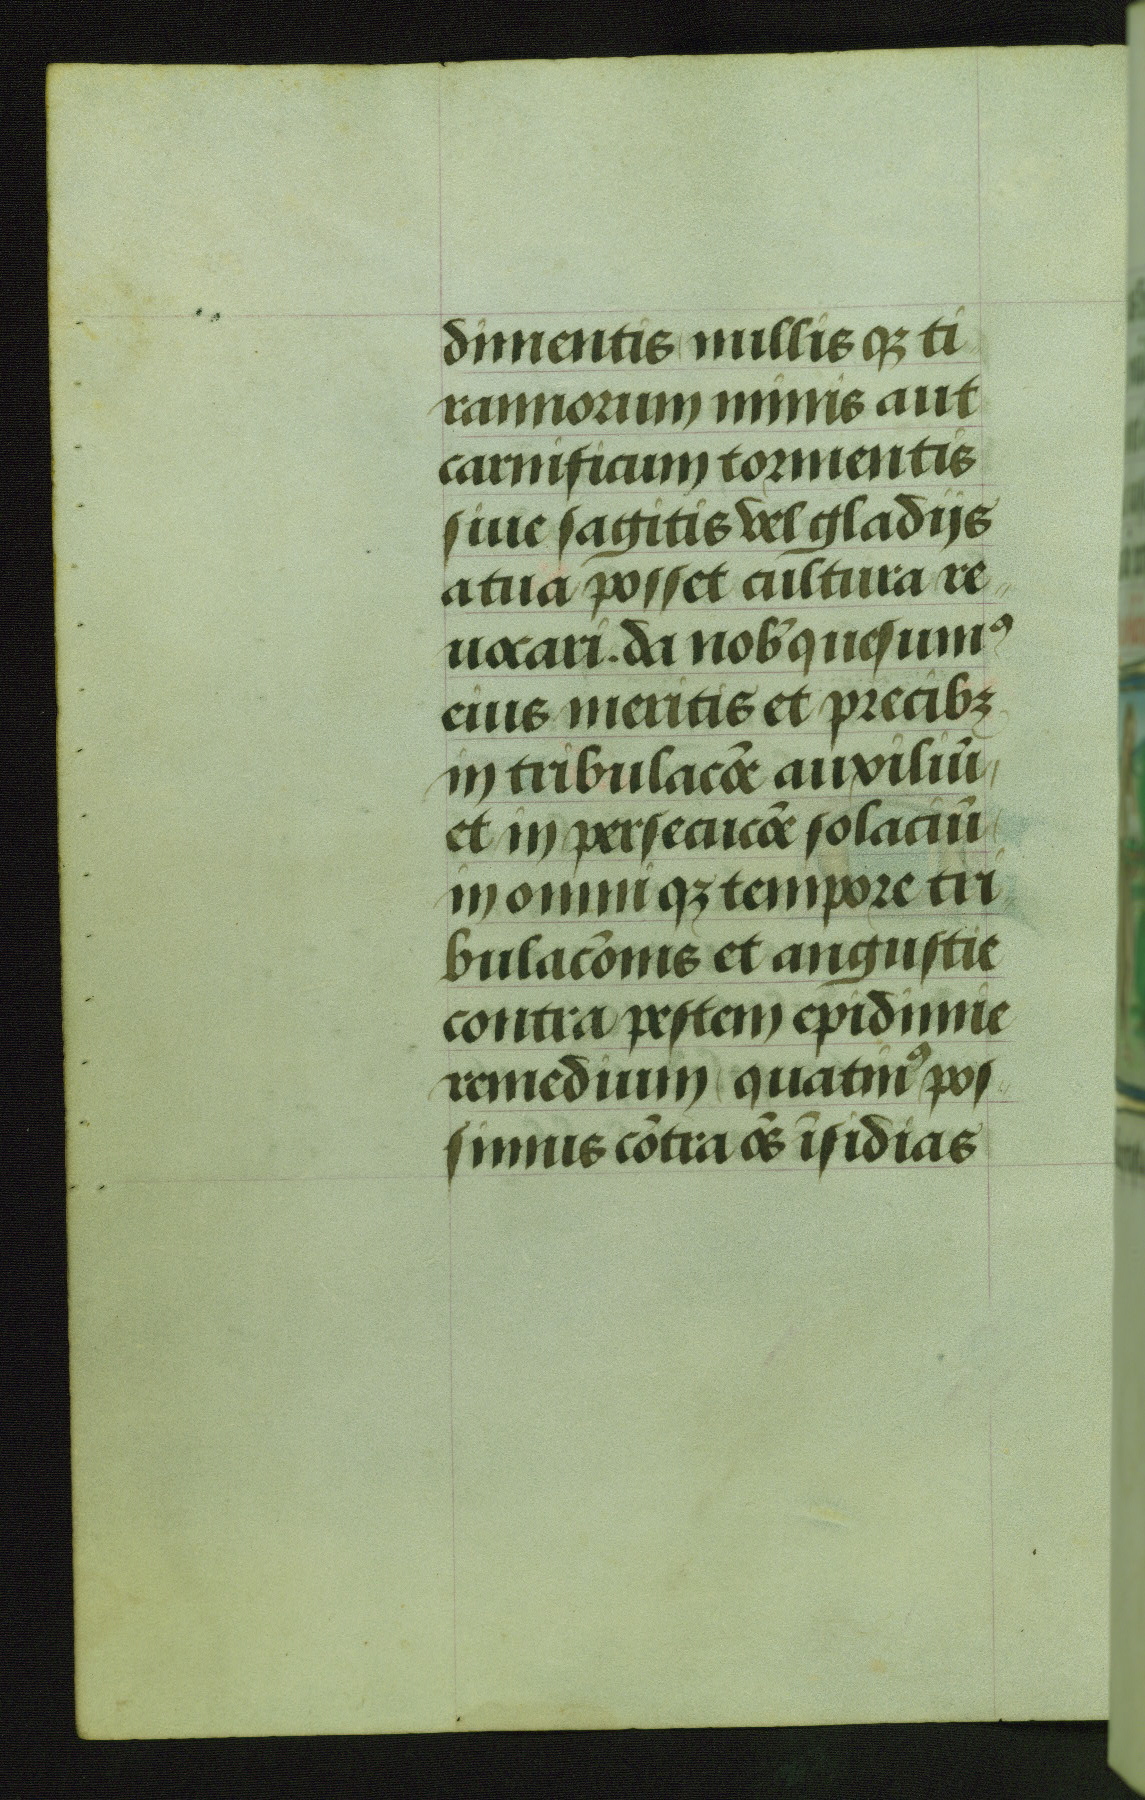 dimentis nullis qꝫ ti
rannorum minis aut
carnificum tormentis
siue sagitis vel gladijs
a tua posset cultura re„
uocari. da nob̄ quesumꝰ
eius meritis et precibꝫ
in tribulacōe auxiliū
et in persecucōe solaciū
in omni qꝫ tempore tri
bulacōnis et angustie
contra pestem epidimie
remedium quatinꝰ pos„
simus cōtra oēs īsidias